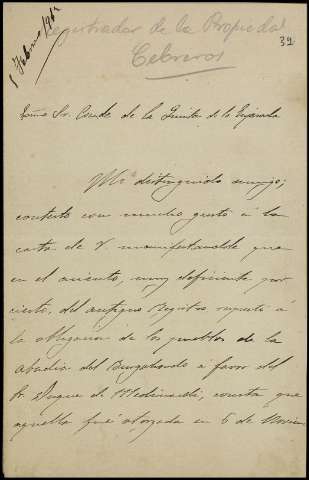 Registrador de la Propiedad
Cebreros
39
1 Febrero
Exmo Sr. Conde de la Quinta de la Enjarada
Mi distinguido amigo;
contesto con mucho gusto á la
carta de V. manifestandole que
en el asiento, muy deficiente por
cierto, del antiguo Registro respecto á
la obligacion de los pueblos de la
abadia del Burgohondo á favor del
Sr Duque de Medinaceli, consta que
aquella fué otorgada en 6 de Noviem